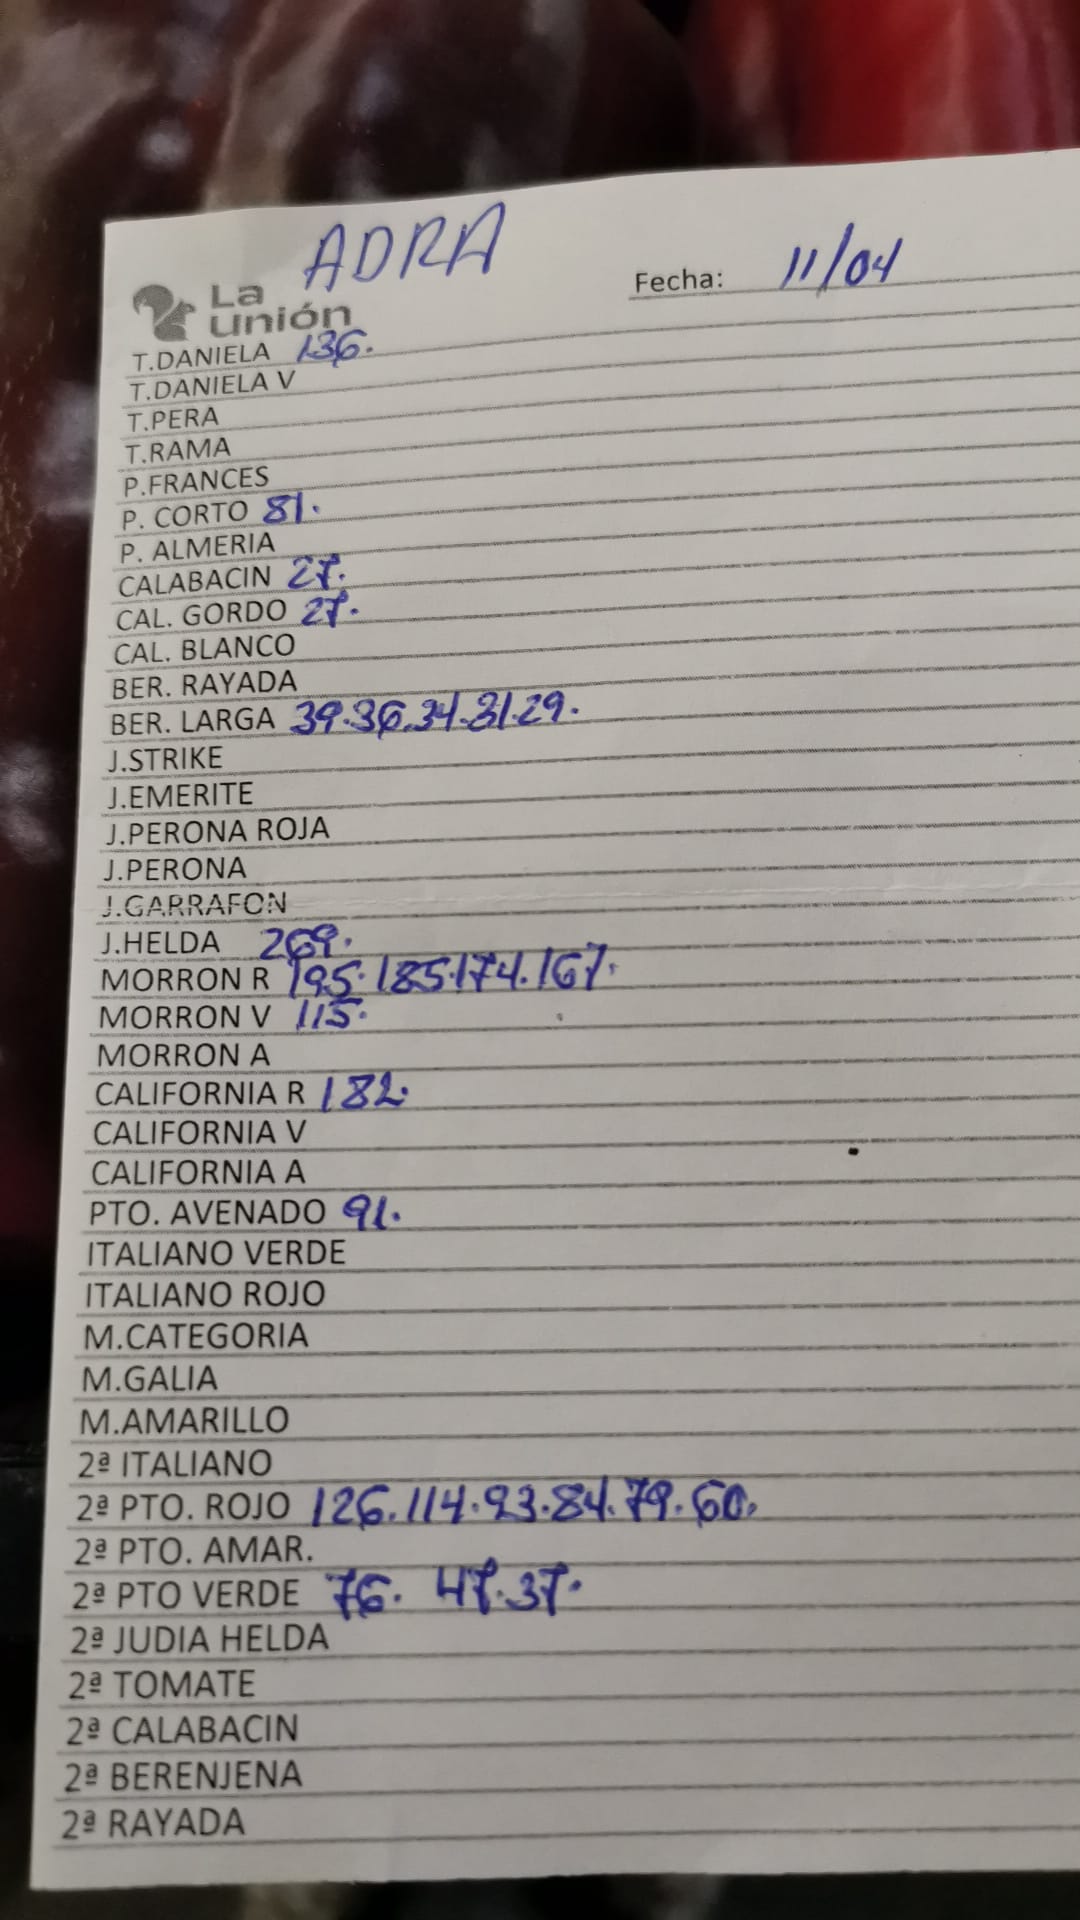 ADRA
La Unión
Fecha: 11/04
T.DANIELA 136.
T.DANIELA V
T.PERA
T.RAMA
P.FRANCES
P. CORTO 81.
P. ALMERIA
CALABACIN 27.
CAL. GORDO 27.
CAL. BLANCO
BER. RAYADA
BER. LARGA 39.36.34.31.29.
J.STRIKE
J.EMERITE
J.PERONA ROJA
J.PERONA
J.GARRAFON
J.HELDA 269.
MORRON R 195.185.174.167.
MORRON V 115.
MORRON A
CALIFORNIA R 182.
CALIFORNIA V
CALIFORNIA A
PTO. AVENADO 91.
ITALIANO VERDE
ITALIANO ROJO
M.CATEGORIA
M.GALIA
M.AMARILLO
2ª ITALIANO
2ª PTO. ROJO 126.114.93.84.79.60.
2ª PTO. AMAR.
2ª PTO VERDE 76. 47.37.
2ª JUDIA HELDA
2ª TOMATE
2ª CALABACIN
2ª BERENJENA
2ª RAYADA